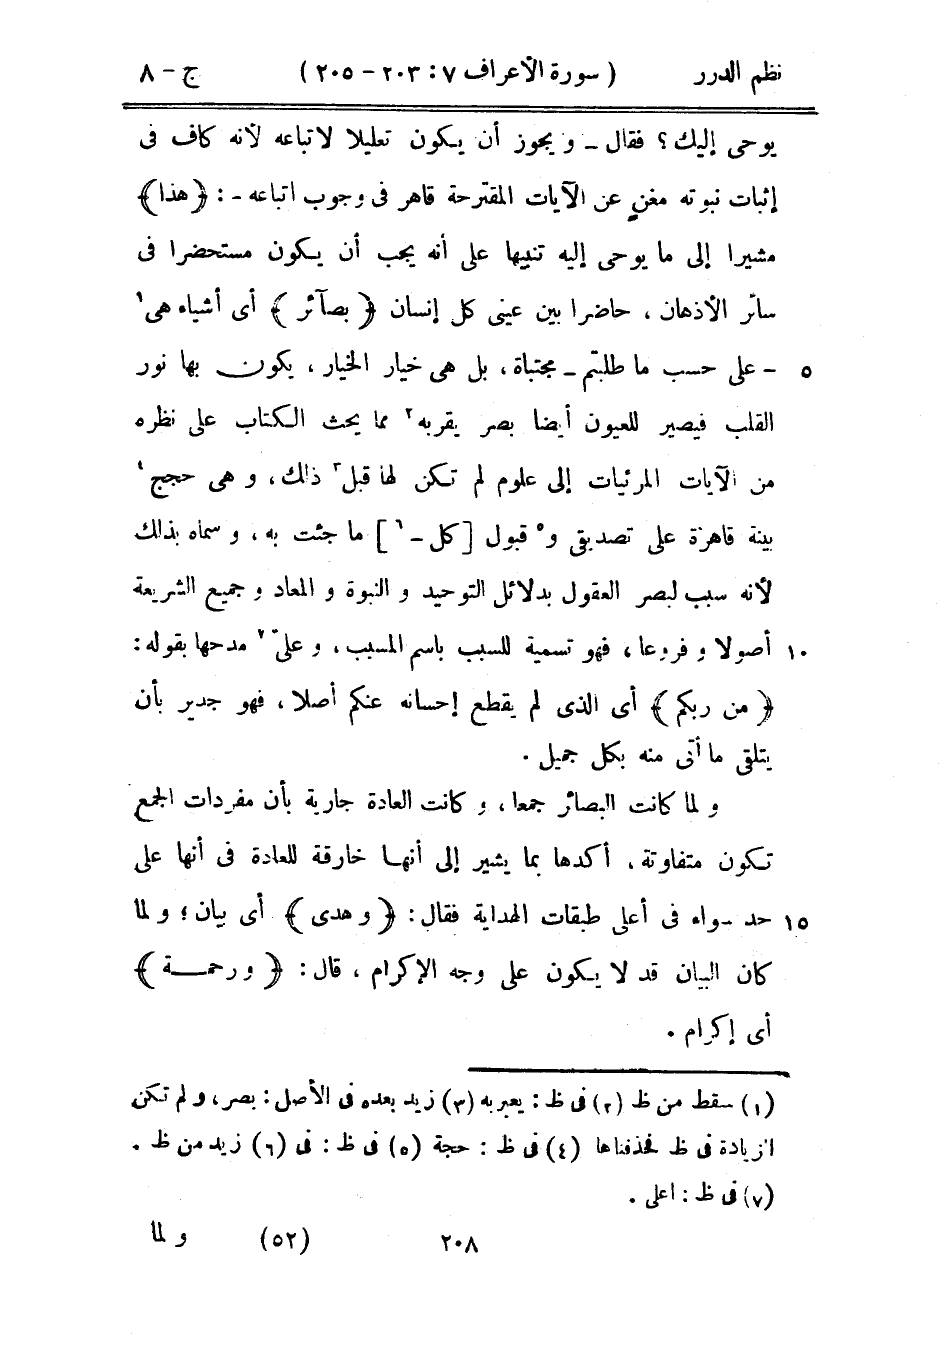 نظم الدرر ( سورة الأعراف ٧ : ٢٠٣ – ٢٠٥ ) ج – ٨
يوحى إليك ؟ فقال – و يجوز أن يكون تعليلا لاتباعه لأنه كاف فى
إثبات نبوته مغن عن الآيات المقترحة قاهر فى وجوب اتباعه – : ﴿ هذا ﴾
مشيرا إلى ما يوحى إليه تنبيها على أنه يجب أن يكون مستحضرا فى
سائر الأذهان ، حاضرا بين عينى كل إنسان ﴿ بصآئر ﴾ أى أشياء هى١
٥ – على حسب ما طلبتم – مجتباة ، بل هى خيار الخيار ، يكون بها نور
القلب فيصير للعيون أيضا بصر يقربه٢ مما يحث الكتاب على نظره
من الآيات المرئيات إلى علوم لم تكن لها قبل٣ ذلك ، و هى حجج٤
بينة قاهرة على تصديقى و٥ قبول [ كل –٦ ] ما جئت به ، و سماه بذلك
لأنه سبب لبصر العقول بدلائل التوحيد و النبوة و المعاد و جميع الشريعة
١٠ أصولا و فروعا ، فهو تسمية للسبب باسم المسبب ، و على٧ مدحها بقوله :
﴿ من ربكم ﴾ أى الذى لم يقطع إحسانه عنكم أصلا ، فهو جدير بأن
يتلقى ما أتى منه بكل جميل .
و لما كانت البصائر جمعا ، و كانت العادة جارية بأن مفردات الجمع
تكون متفاوتة ، أكدها بما يشير إلى أنها خارقة للعادة فى أنها على
١٥ حد سواء فى أعلى طبقات الهداية فقال : ﴿ و هدى ﴾ أى بيان ؛ و لما
كان البيان قد لا يكون على وجه الإكرام ، قال : ﴿ و رحمة ﴾
أى إكرام .
(١) سقط من ظ (٢) فى ظ : يعبر به (٣) زيد بعده فى الأصل : بصر ، و لم تكن
الزيادة فى ظ فحذفناها (٤) فى ظ : حجة (٥) فى ظ : فى (٦) زيد من ظ .
(٧) فى ظ : اعلى .
٢٠٨ (٥٢) و لما